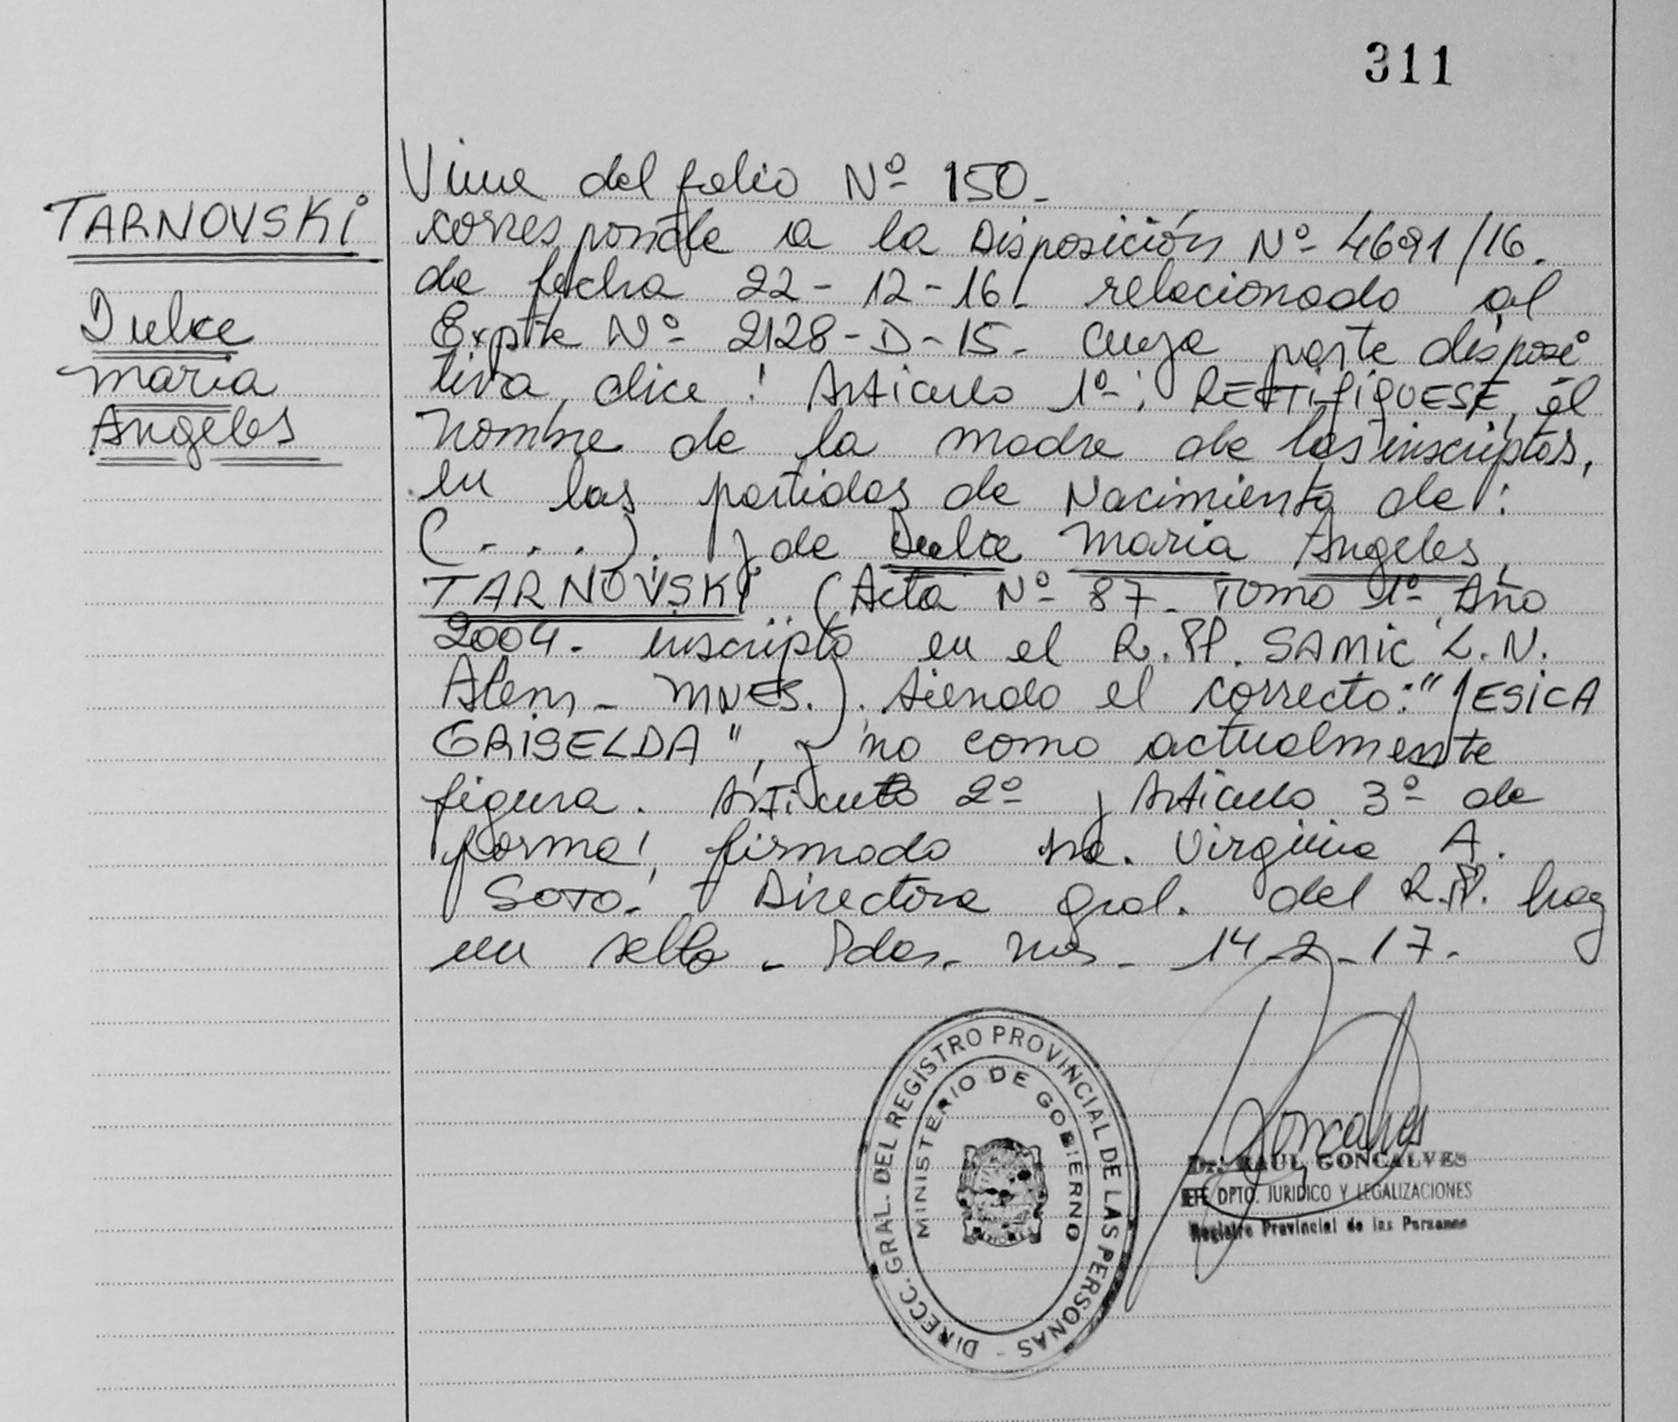 311
TARNOVSKi
Dulce
Maria
Angeles
Viene del folio Nº 150.
corresponde a la Disposición Nº 4691/16.
de fecha 22-12-16. relacionado al
Expte Nº 2128-D-15. cuya parte disposi
tiva dice: Articulo 1º: RECTIFIQUESE, el
nombre de la madre de los inscriptos,
en las partidas de Nacimiento de:
(....). y de Dulce Maria Angeles
TARNOVSKi (Acta Nº 87- Tomo 1º Año
2004. inscripto en el R.PP. SAMIC L.N.
Alem - MNES.). siendo el correcto: "JESiCA
GRISELDA", y no como actualmente
figura. Articulo 2º y Articulo 3º de
forma, firmado Virginia A.
Soto. Directora Gral. del R.PP. hay
un sello - Pdas. Mns - 14-2-17.
DIRECC. GRAL. DEL REGISTRO PROVINCIAL DE LAS PERSONAS -
MINISTERIO DE GOBIERNO
Goncalves
Dr. RAUL GONCALVES
JEFE DPTO. JURIDICO Y LEGALIZACIONES
Registro Provincial de las Personas